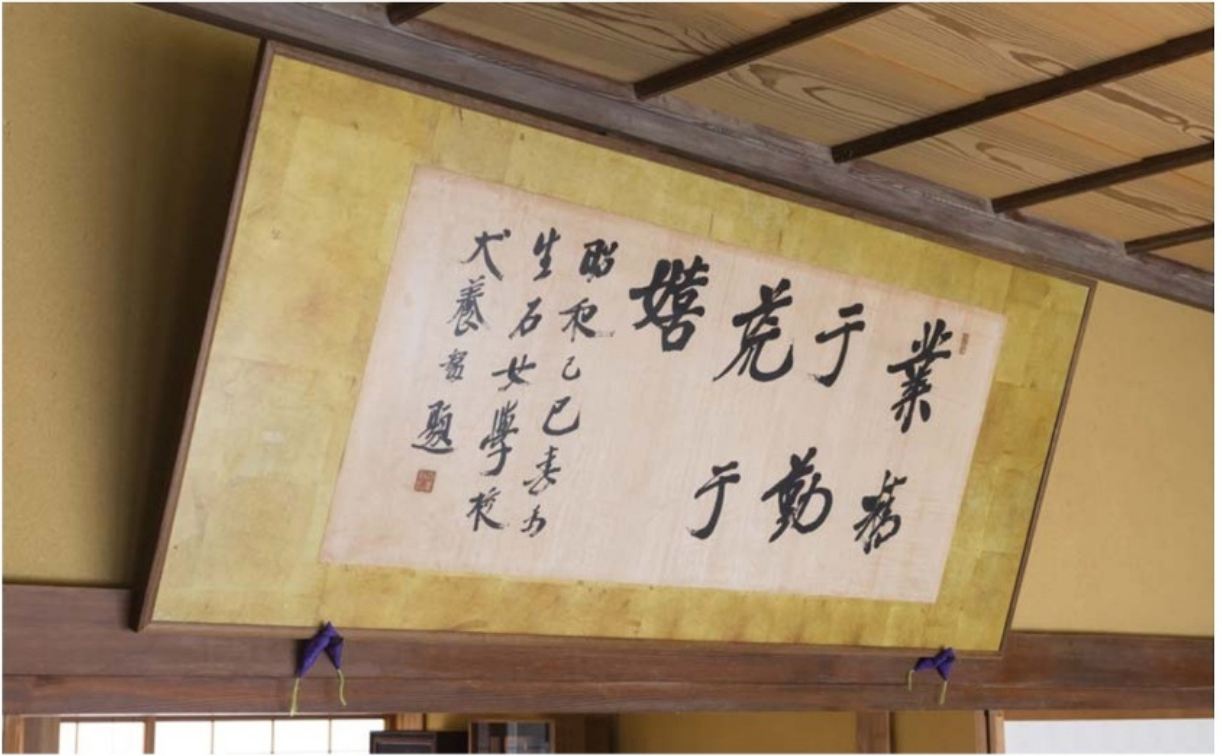 業精
于勤
荒于
嬉
昭和己巳春為
生石女學校
犬養毅題